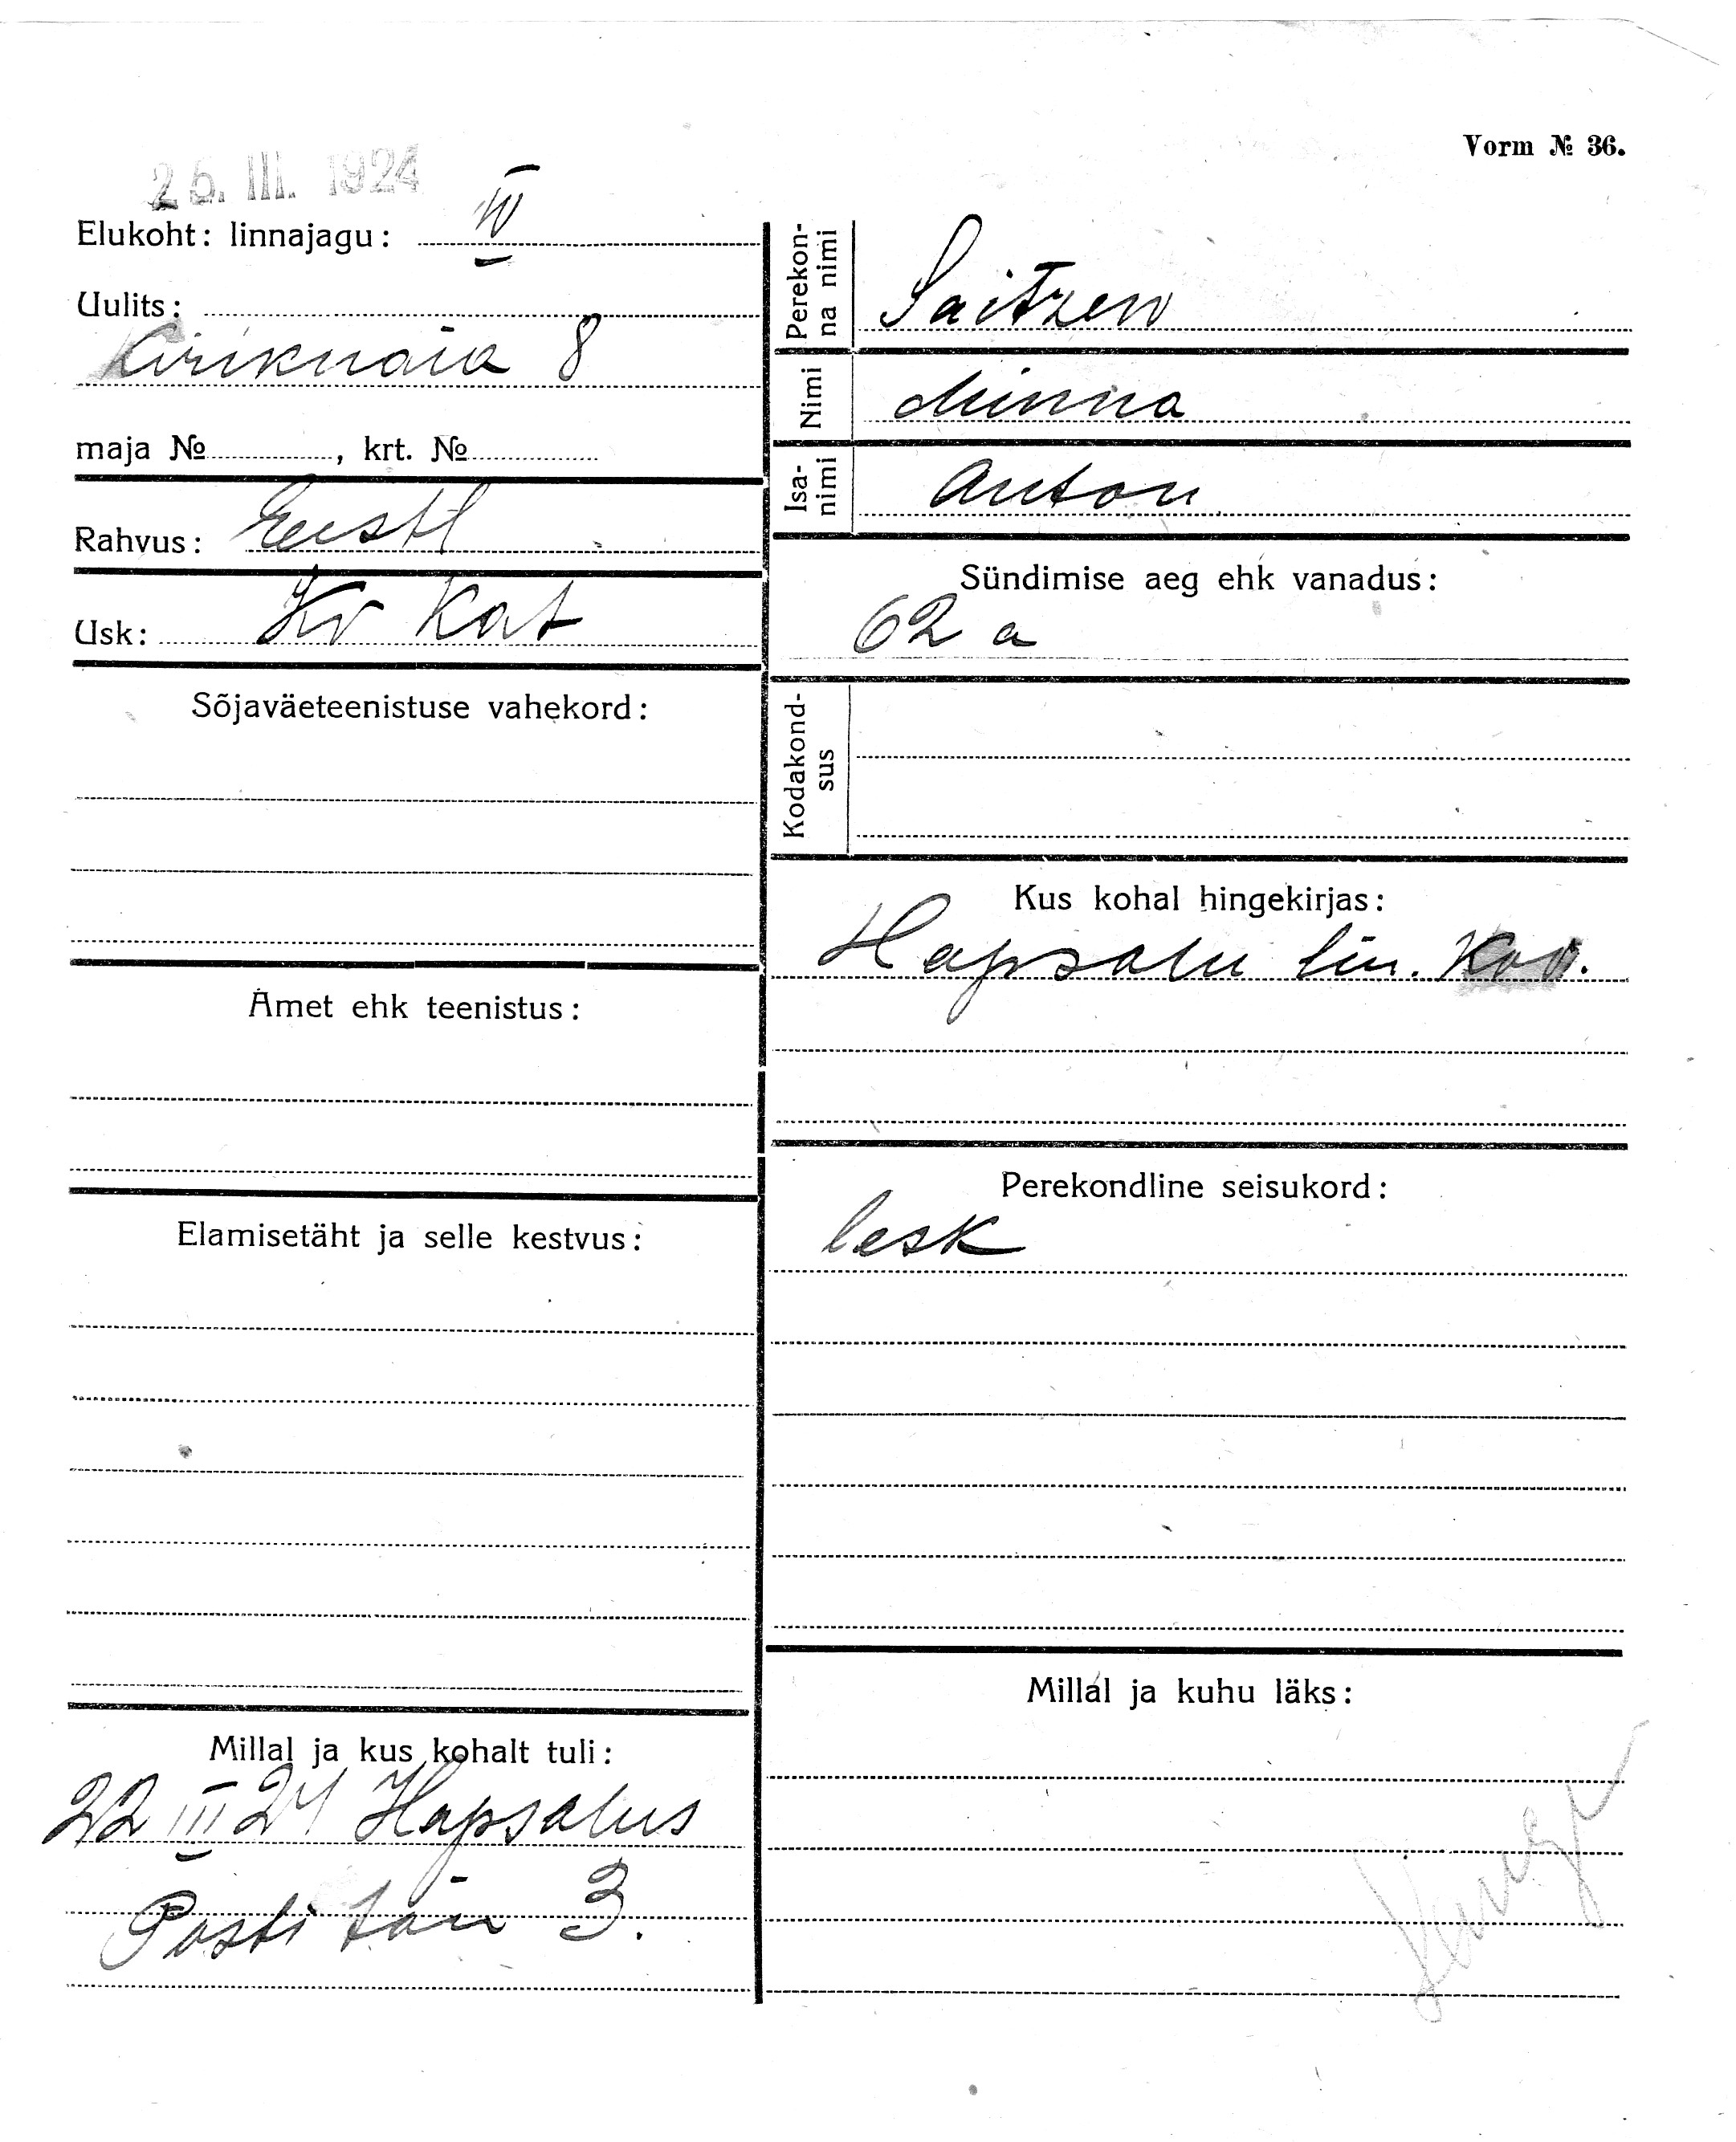 Vorm № 36.
25. III. 1924
Elukoht: linnajagu: IV
Uulits:
Kirikuaia 8
maja № , krt. №
Rahvus: Eestl
Usk: Kr Kat
Sõjaväeteenistuse vahekord:
Amet ehk teenistus:
Elamisetäht ja selle kestvus:
Millal ja kus kohalt tuli:
22 III 24 Hapsalus
Posti tän 3.
Perekon-
na nimi
Saitzew
Nimi
Minna
Isa-
nimi
Anton
Sündimise aeg ehk vanadus:
62 a
Kodakond-
sus
Kus kohal hingekirjas:
Hapsalu lin. Kod.
Perekondline seisukord:
lesk
Millal ja kuhu läks: